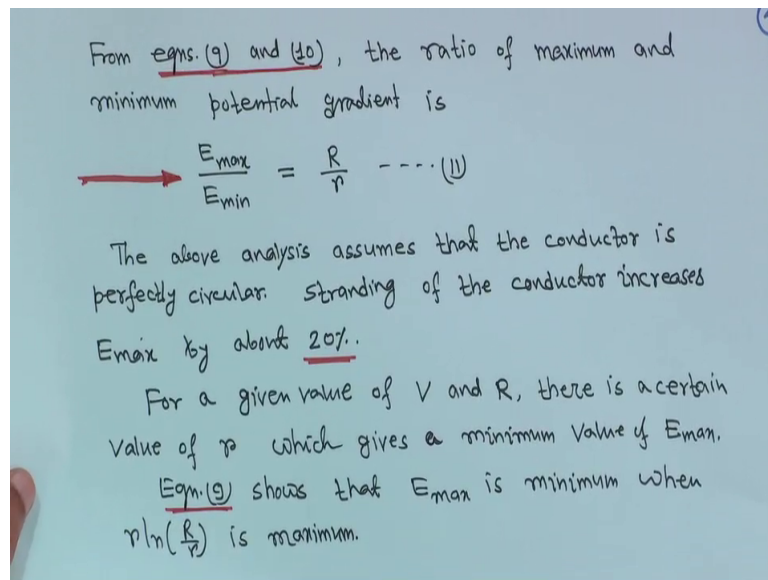 From eqns. (9) and (10), the ratio of maximum and
minimum potential gradient is
Emax / Emin = R / r ----(11)
The above analysis assumes that the conductor is
perfectly circular. Stranding of the conductor increases
Emax by about 20%.
For a given value of V and R, there is a certain
value of r which gives a minimum value of Emax.
Eqn.(9) shows that Emax is minimum when
r ln(R/r) is maximum.